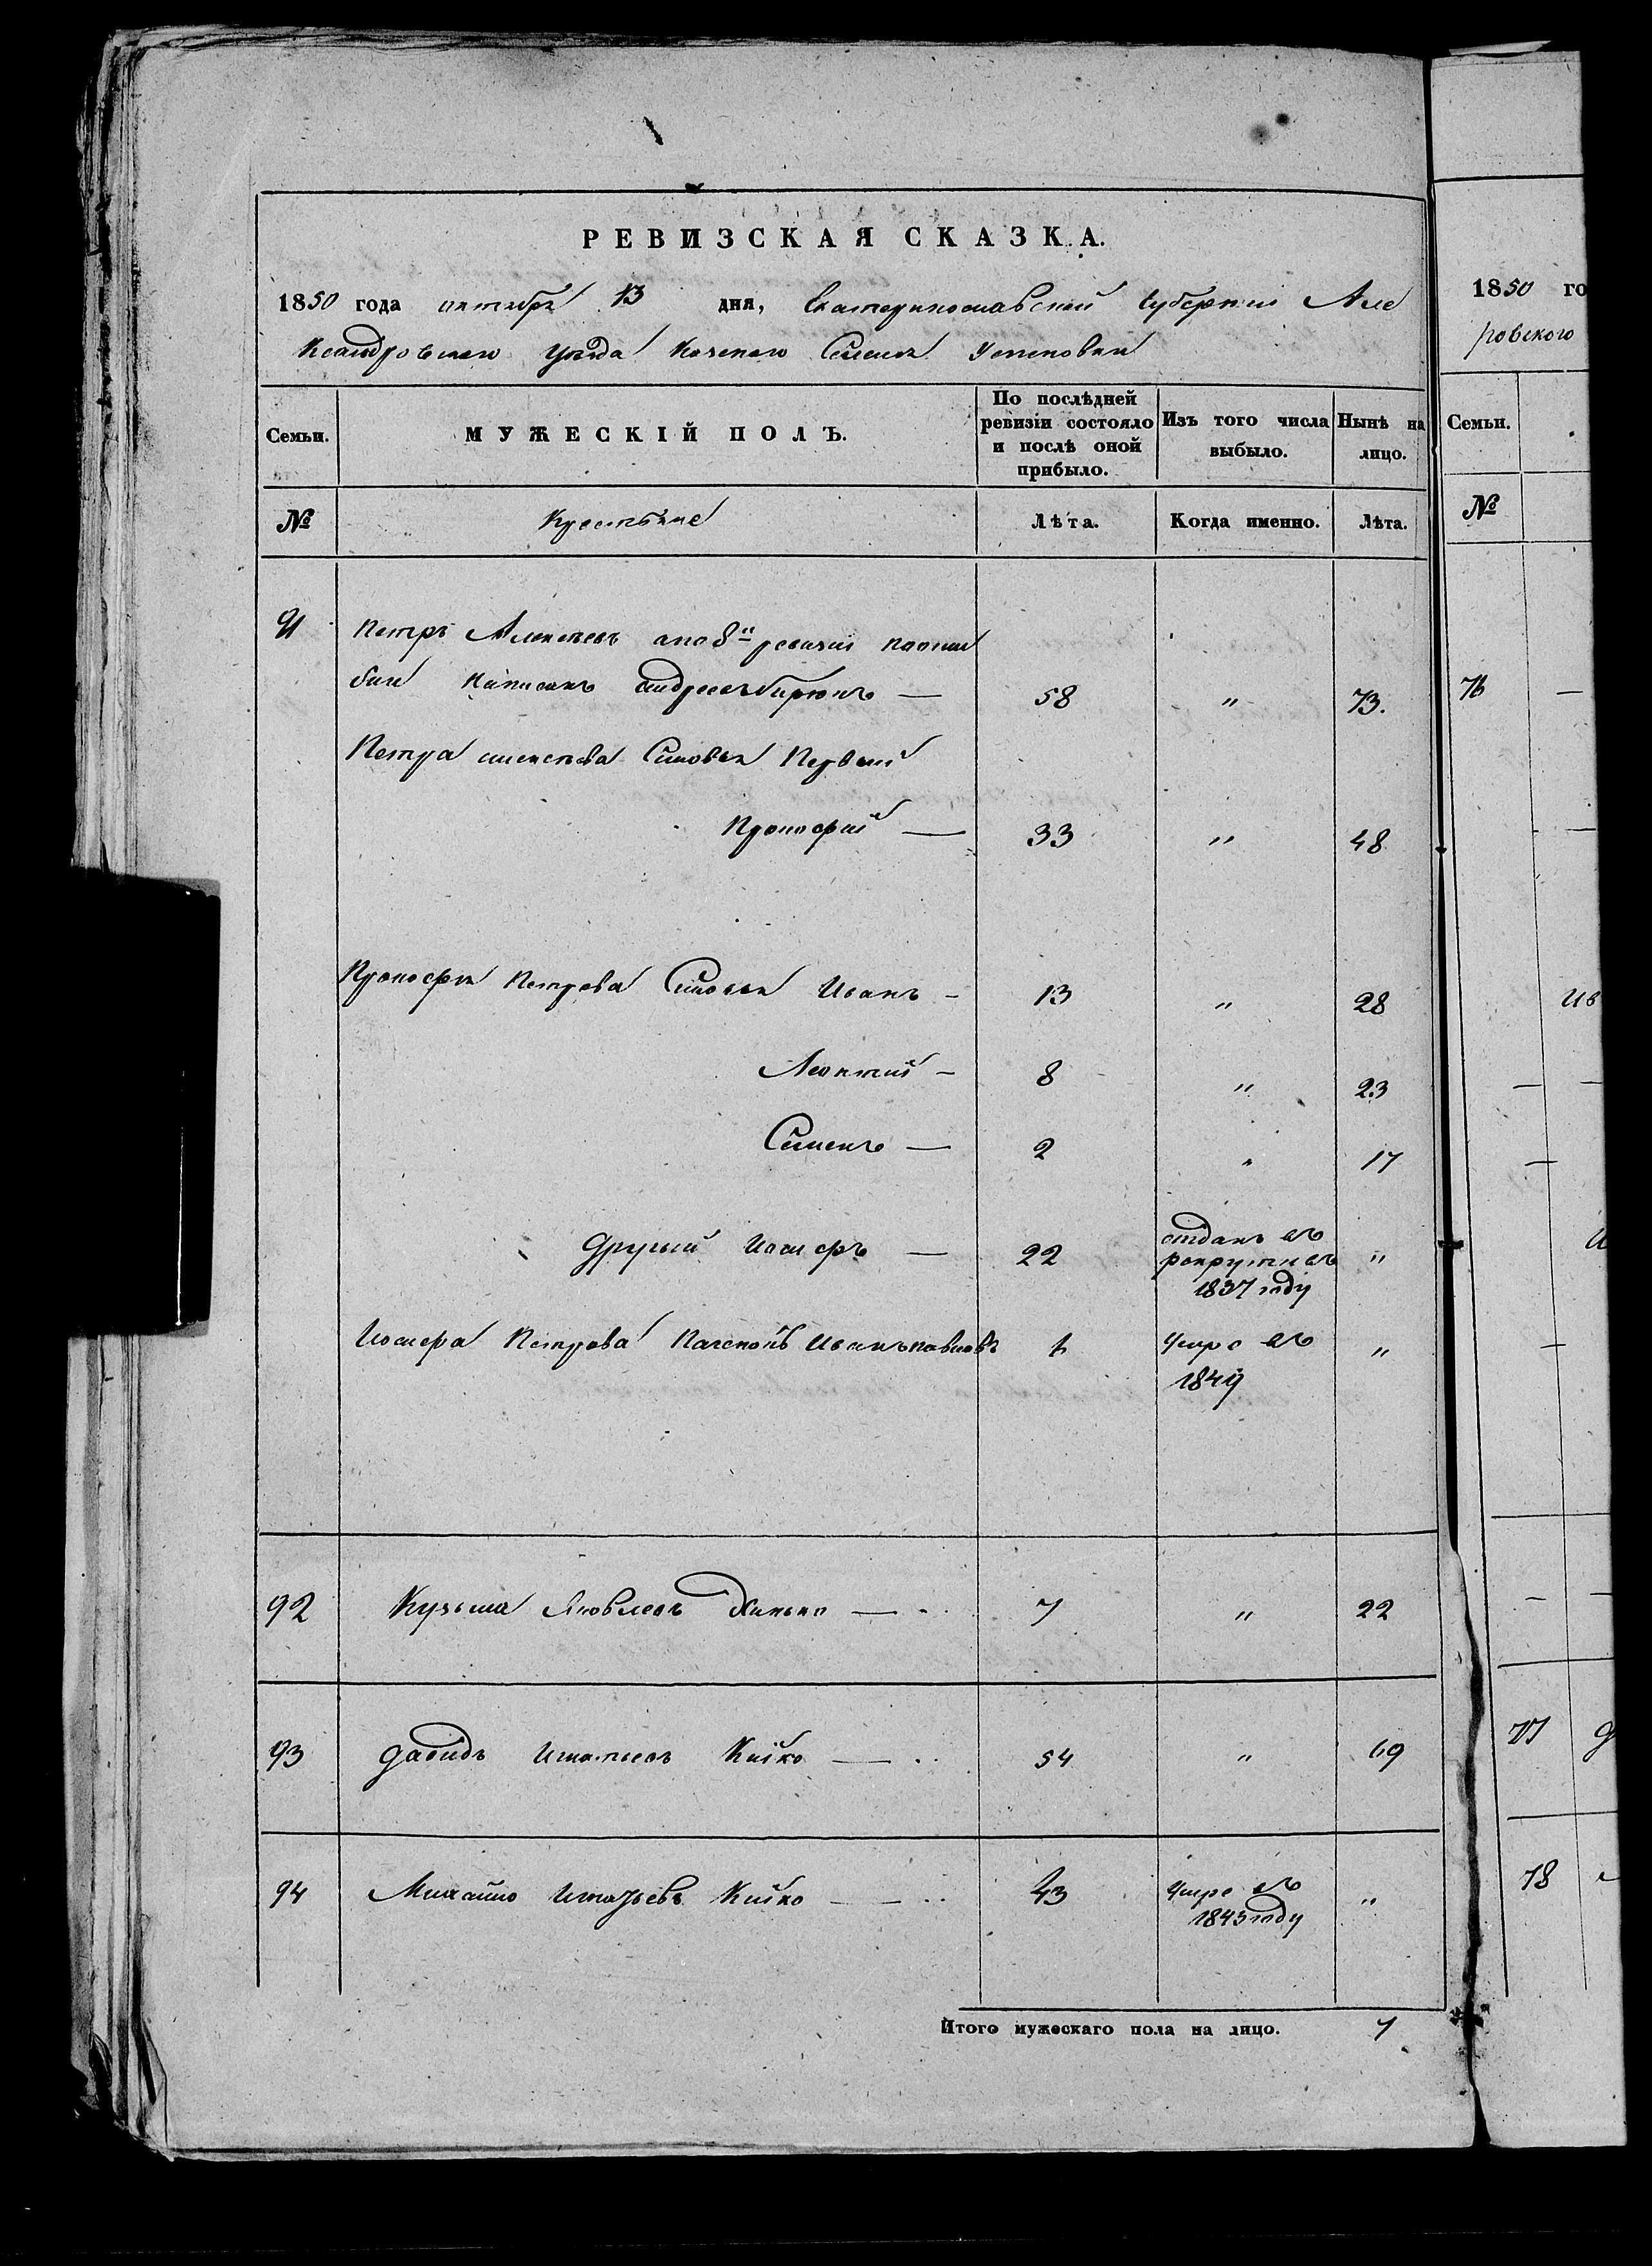 РЕВИЗСКАЯ СКАЗКА.
1850 года октября 13 дня, Екатеринославской Губернии Але
ксандровского уезда казеного Селения Успеновки
Семьи.
МУЖЕСКІЙ ПОЛЪ.
По послѣдней ревизіи состояло и послѣ оной прибыло.
Изъ того числа выбыло.
Нынѣ на лицо.
№
Крестьяне
Лѣта.
Когда именно.
Лѣта.
91 Петръ Алексеевъ а по 8й ревизии
написанъ Андреевъ Бирюкъ — 58 " 73.
Петра Алексеева Сыновья Первый
Прокофий — 33 " 48
Прокофия Петрова Сыновья Иванъ - 13 " 28
Леонтий - 8 " 23
Семенъ — 2 " 17
Другий Иосифъ — 22 отданъ въ рекруты въ 1837 году "
Иосифа Петрова Иванъ 1 умре въ "
92 Кузьма Яковлевъ — 7 " 22
93 Давидъ Игнатьевъ Кийко — 54 " 69
94 Михайло Игнатьевъ Кийко — 43 Умре въ 1843 году "
Итого мужескаго пола на лицо. 7
1850 го
ровского
Семьи.
№
76
Ив
77
78